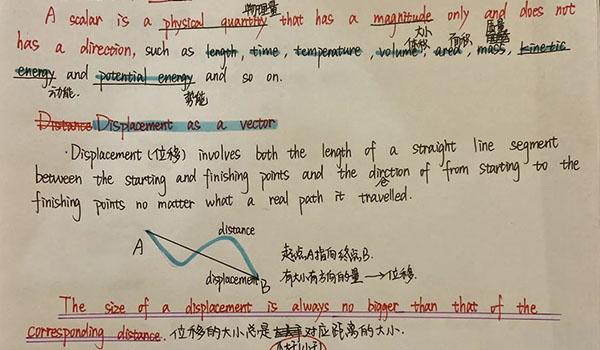 物理量
A scalar is a physical quantity that has a magnitude only and does not
大小
has a direction, such as length, time, temperature, volume, area, mass, kinetic
体积 面积 质量
energy and potential energy and so on.
动能. 势能
Distance Displacement as a vector
·Displacement (位移) involves both the length of a straight line segment
between the starting and finishing points and the dirction of from starting to the
e
finishing points no matter what a real path it travelled.
distance
A
起点A指向终点B.
displacement B
有大小有方向的量 → 位移.
The size of a displacement is always no bigger than that of the
corresponding distance. 位移的大小总是 对应距离的大小.